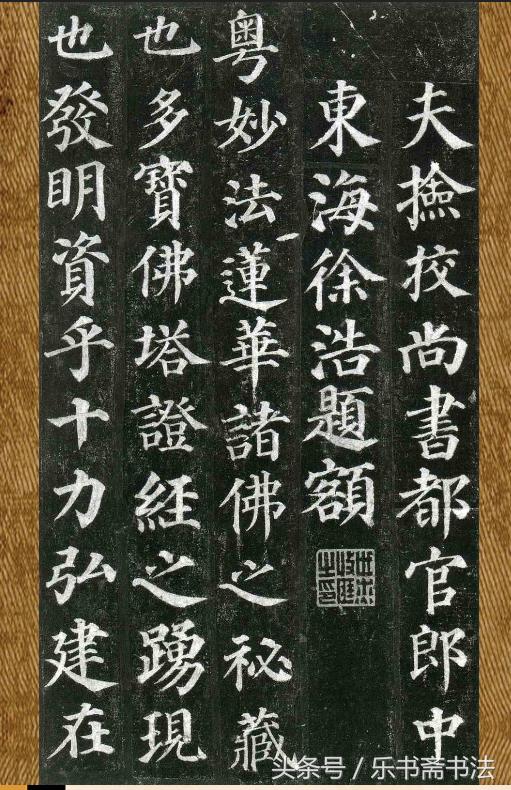 夫撿挍尚書都官郎中
東海徐浩題額
粤妙法蓮華諸佛之祕藏
也多寶佛塔證經之踴現
也發明資乎十力弘建在
头条号 / 乐书斋书法